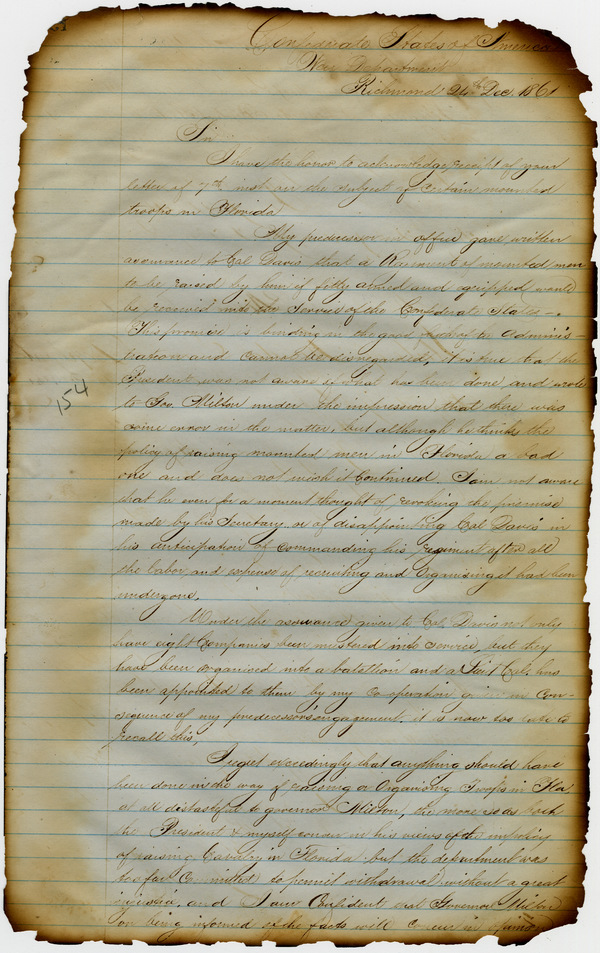 Confederate States of America
War Department
Richmond 24th Dec. 1861
Sir
I have the honor to acknowledge receipt of your
letter of 7th inst on the subject of certain mounted
troops in Florida
My predecessor in office gave written
assurance to Col Davis that a Regiment of mounted men
to be raised by him if fitly armed and equipped would
be received into the service of the Confederate States.
This promise is binding in the good of the Adminis-
tration and cannot be disregarded, it is true that the
President was not aware of what has been done and wrote
to Gov. Milton under the impression that there was
some error in the matter, but although he thinks the
policy of raising mounted men in Florida a bad
one and does not wish it continued. I am not aware
that he ever for a moment thought of revoking the promise
made by his Secretary or of disappointing Col Davis in
his anticipation of commanding his regiment after all
the labor and expense of recruiting and organising it had been
undergone.
Under the assurance given to Col. Davis not only
have eight Companies been mustered into service, but they
have been organised into a batallion and a Lieut Col. has
been appointed to them by my co-operation given in con-
sequence of my predecessors engagement, it is now too late to
recall this.
I regret exceedingly that anything should have
been done in the way of raising or Organising Troops in Fla
at all distasteful to governor Milton, the more so as both
the President & myself concur in his views of the impolicy
of raising Cavalry in Florida but the department was
too far Committed to permit withdrawal without a great
injustice, and I am Confident that Governor Milton
on being informed of the facts will concur in
154